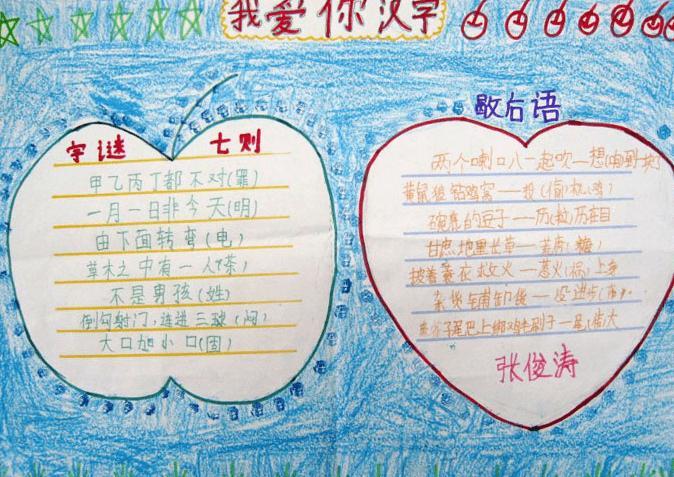 我爱你汉字
字谜 七则
甲乙丙丁都不对(罪)
一月一日非今天(明)
由下面转弯(电)
草木之中有一人(茶)
不是男孩(姓)
倒勾射门,连进三球(闷)
大口加小口(固)
歇后语
两个喇叭一起吹—想(响)到一块
黄鼠狼钻鸡窝——投(偷)机(鸡)
碗底的豆子——历(粒)历在目
甘蔗地里长草——荒唐(糖)
披着蓑衣救火——惹火(祸)上身
杂货铺卸货——没进步(布)
张俊涛